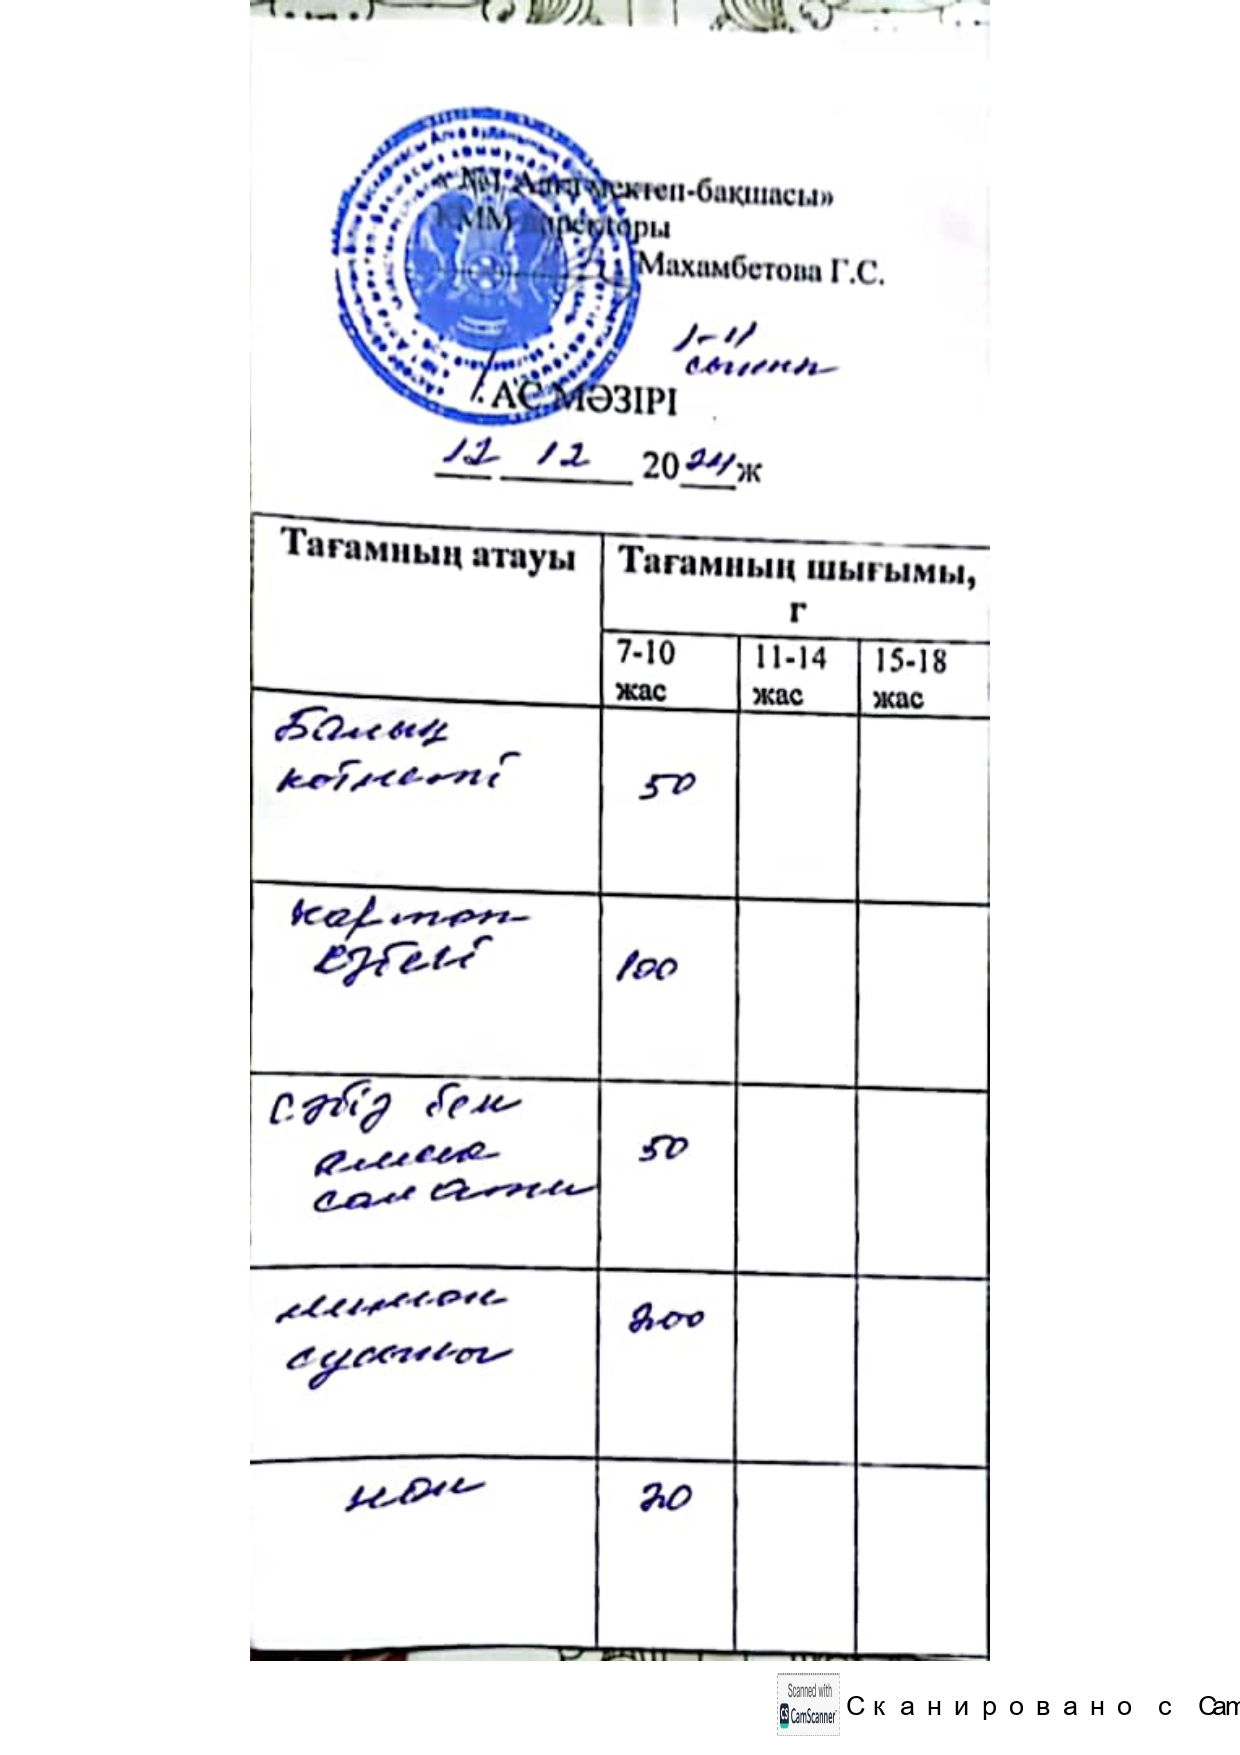 « №1 Алға мектеп-бақшасы»
КММ директоры
Махамбетова Г.С.
1-11
сынып
АС МӘЗІРІ
12 12 2024ж
Тағамның атауы
Тағамның шығымы,
г
7-10
жас
11-14
жас
15-18
жас
Балық
котлеті
50
картоп
езбесі
100
Сәбіз бен
алма
салаты
50
лимон
сусыны
200
нан
20
Scanned with
CS CamScanner
Сканировано с Cam